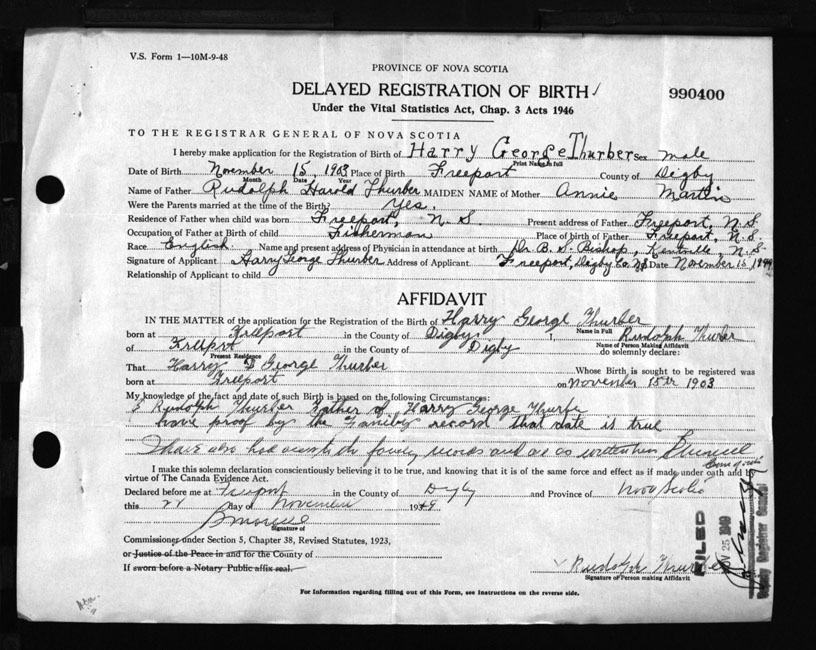 V.S. Form 1—10M-9-48
PROVINCE OF NOVA SCOTIA
DELAYED REGISTRATION OF BIRTH
990400
Under the Vital Statistics Act, Chap. 3 Acts 1946
TO THE REGISTRAR GENERAL OF NOVA SCOTIA
I hereby make application for the Registration of Birth of Harry George Thurber Sex male
Print Name in full
Date of Birth November 15 1903 Place of Birth Freeport County of Digby
Month Day Year
Name of Father Rudolph Harold Thurber MAIDEN NAME of Mother Annie Martin
Were the Parents married at the time of the Birth? Yes.
Residence of Father when child was born Freeport, N.S. Present address of Father Freeport, N.S.
Occupation of Father at Birth of child Fisherman Place of birth of Father Freeport, N.S.
Race English Name and present address of Physician in attendance at birth Dr. B. S. Bishop, Kentville, N.S.
Signature of Applicant Harry George Thurber Address of Applicant Freeport, Digby Co. N.S. Date November 15 1949
Relationship of Applicant to child
AFFIDAVIT
IN THE MATTER of the application for the Registration of Birth of Harry George Thurber
Name in Full
born at Freeport in the County of Digby I, Rudolph Thurber
Name of Person Making Affidavit
of Freeport in the County of Digby do solemnly declare:
Present Residence
That Harry George Thurber Whose Birth is sought to be registered was
born at Freeport on November 15th 1903
My knowledge of the fact and date of such Birth is based on the following Circumstances:
I Rudolph Thurber Father of Harry George Thurber
have proof by the Family record that date is true
I have also had access to the family records and as written
I make this solemn declaration conscientiously believing it to be true, and knowing that it is of the same force and effect as if made under oath and by
virtue of The Canada Evidence Act.
Declared before me at Freeport in the County of Digby and Province of Nova Scotia
this 22 day of November 1949
Signature of
Commissioner under Section 5, Chapter 38, Revised Statutes, 1923,
or Justice of the Peace in and for the County of
If sworn before a Notary Public affix seal.
Rudolph Thurber
Signature of Person making Affidavit
FILED
NOV 25 1949
Deputy Registrar General
For Information regarding filling out of this Form, see Instructions on the reverse side.